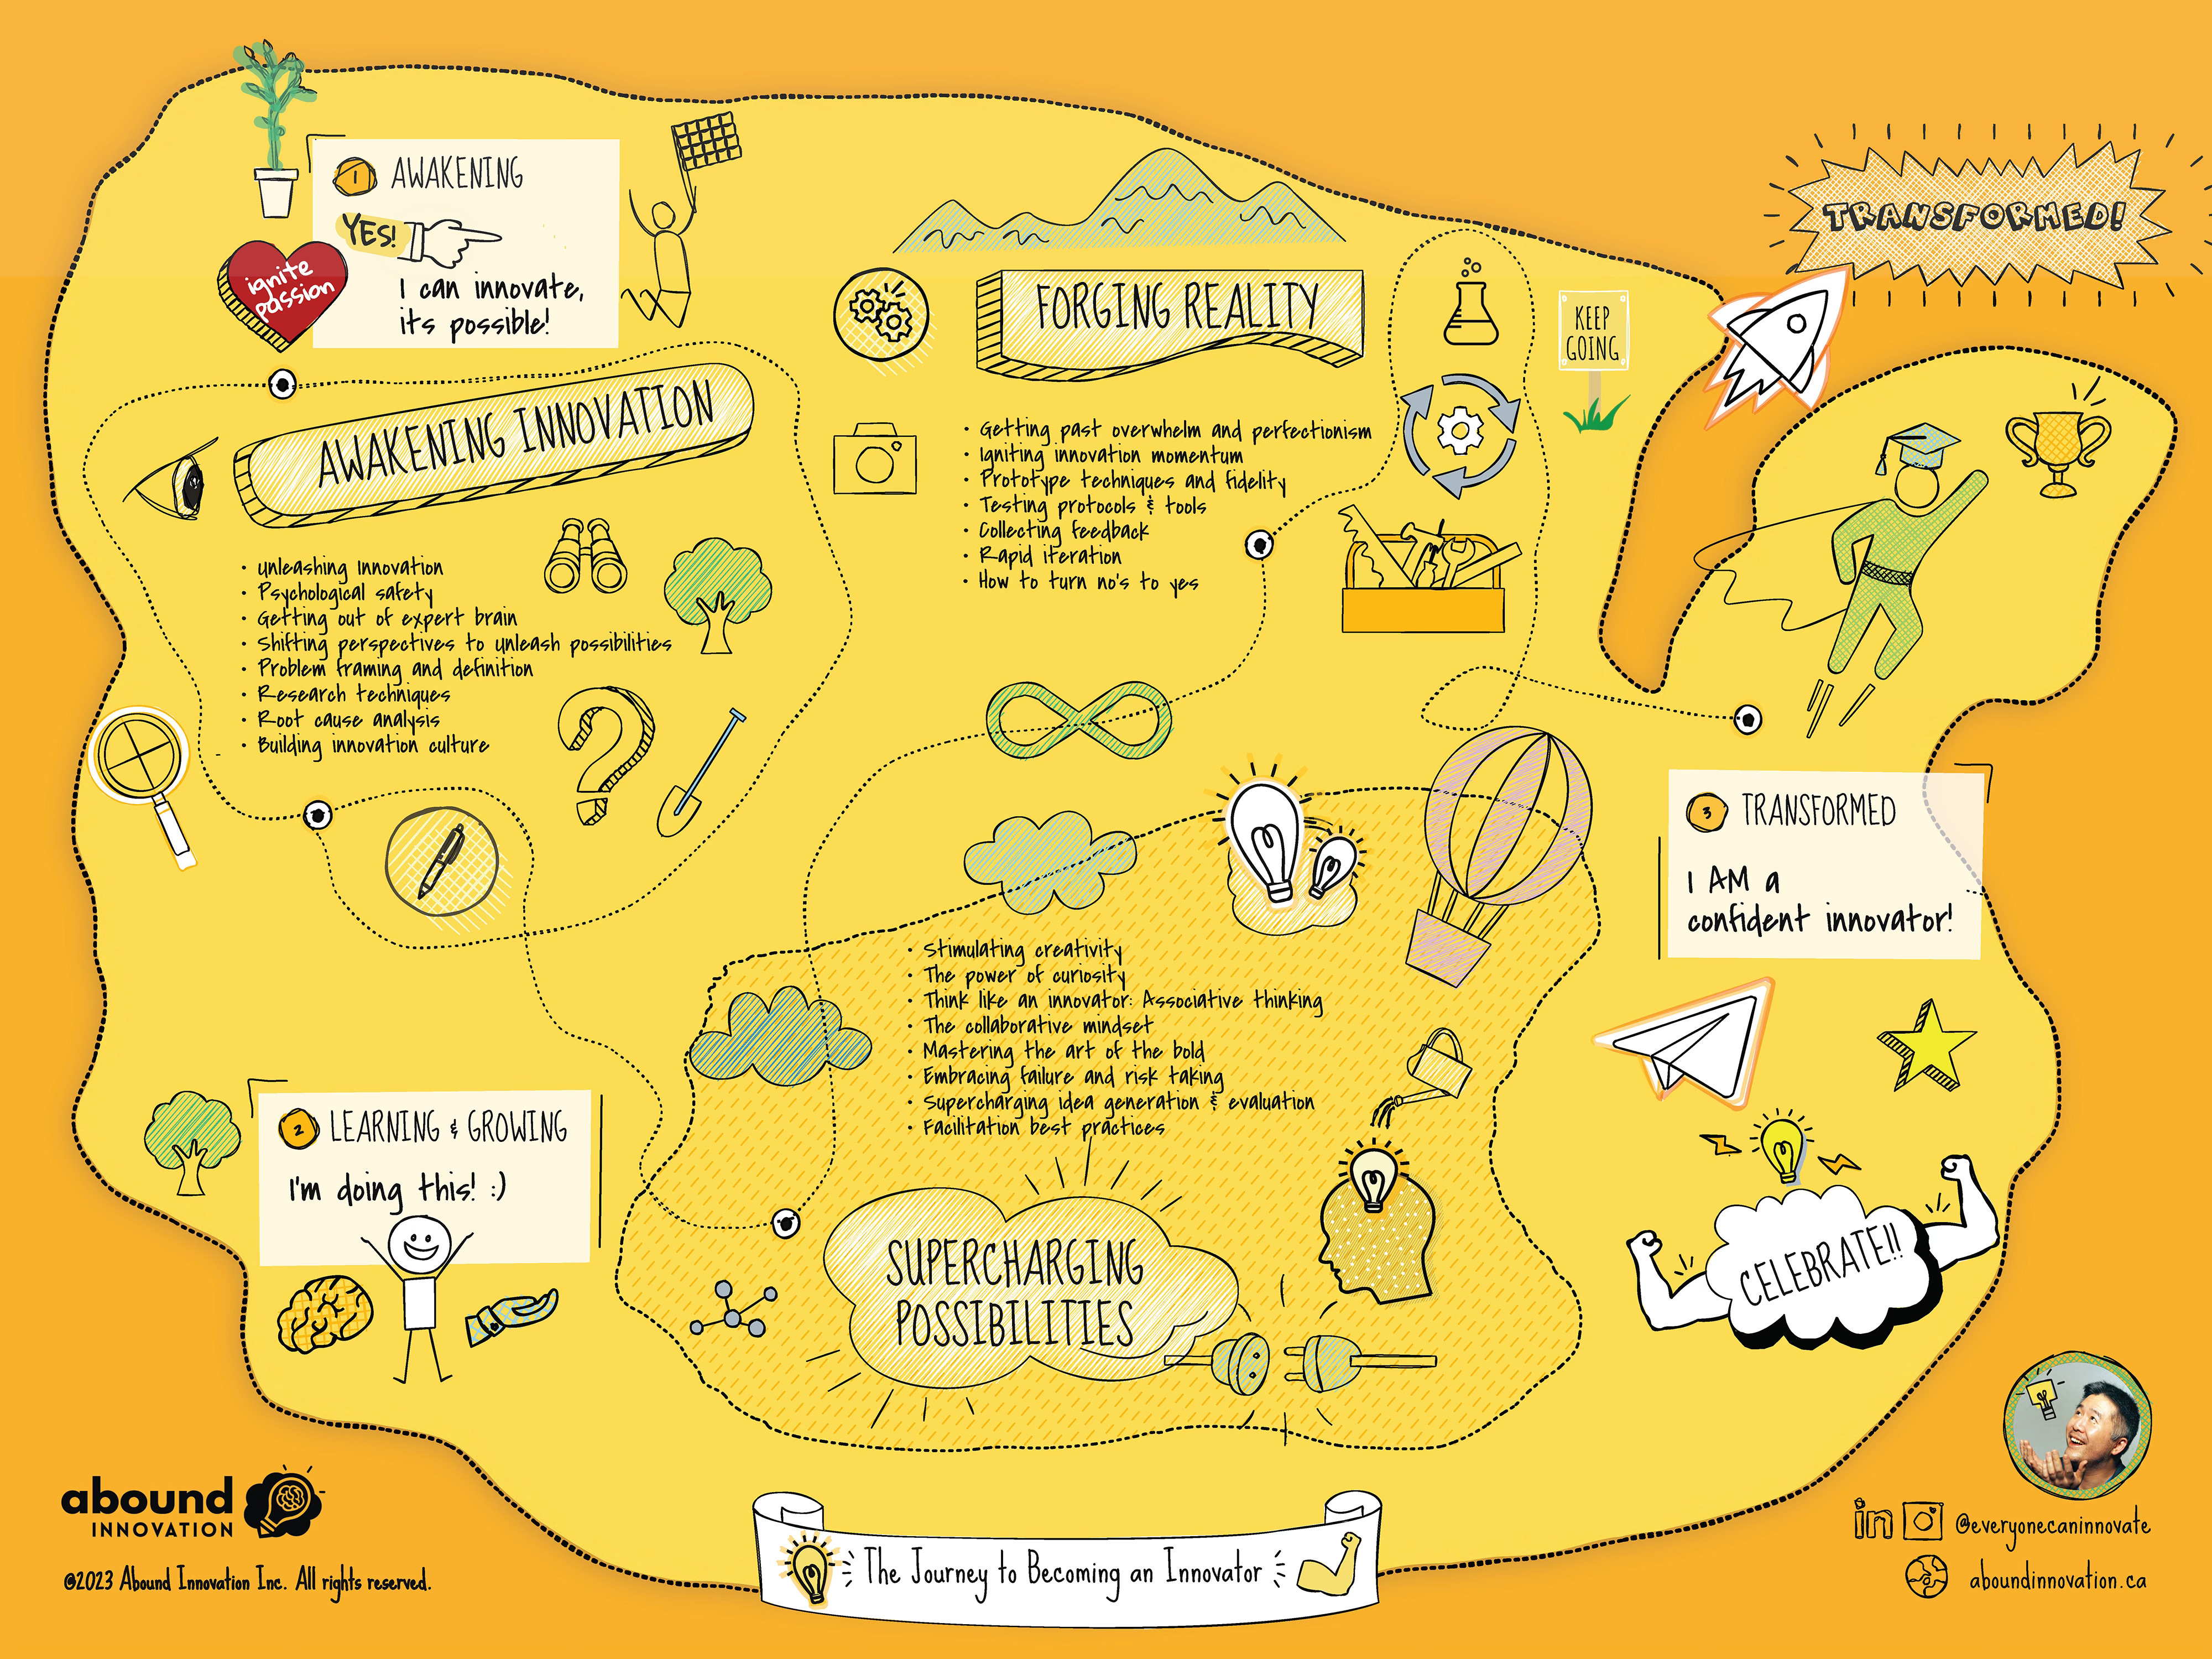 1 AWAKENING
YES!
I can innovate,
its possible!
ignite
passion
AWAKENING INNOVATION
• Unleashing Innovation
• Psychological safety
• Getting out of expert brain
• Shifting perspectives to unleash possibilities
• Problem framing and definition
• Research techniques
• Root cause analysis
• Building innovation culture
2 LEARNING & GROWING
I'm doing this! :)
FORGING REALITY
• Getting past overwhelm and perfectionism
• Igniting innovation momentum
• Prototype techniques and fidelity
• Testing protocols & tools
• Collecting feedback
• Rapid iteration
• How to turn no's to yes
KEEP
GOING
• Stimulating creativity
• The power of curiosity
• Think like an innovator: Associative thinking
• The collaborative mindset
• Mastering the art of the bold
• Embracing failure and risk taking
• Supercharging idea generation & evaluation
• Facilitation best practices
SUPERCHARGING
POSSIBILITIES
TRANSFORMED!
3 TRANSFORMED
I AM a
confident innovator!
CELEBRATE!!
abound
INNOVATION
©2023 Abound Innovation Inc. All rights reserved.
The Journey to Becoming an Innovator
in @everyonecaninnovate
aboundinnovation.ca